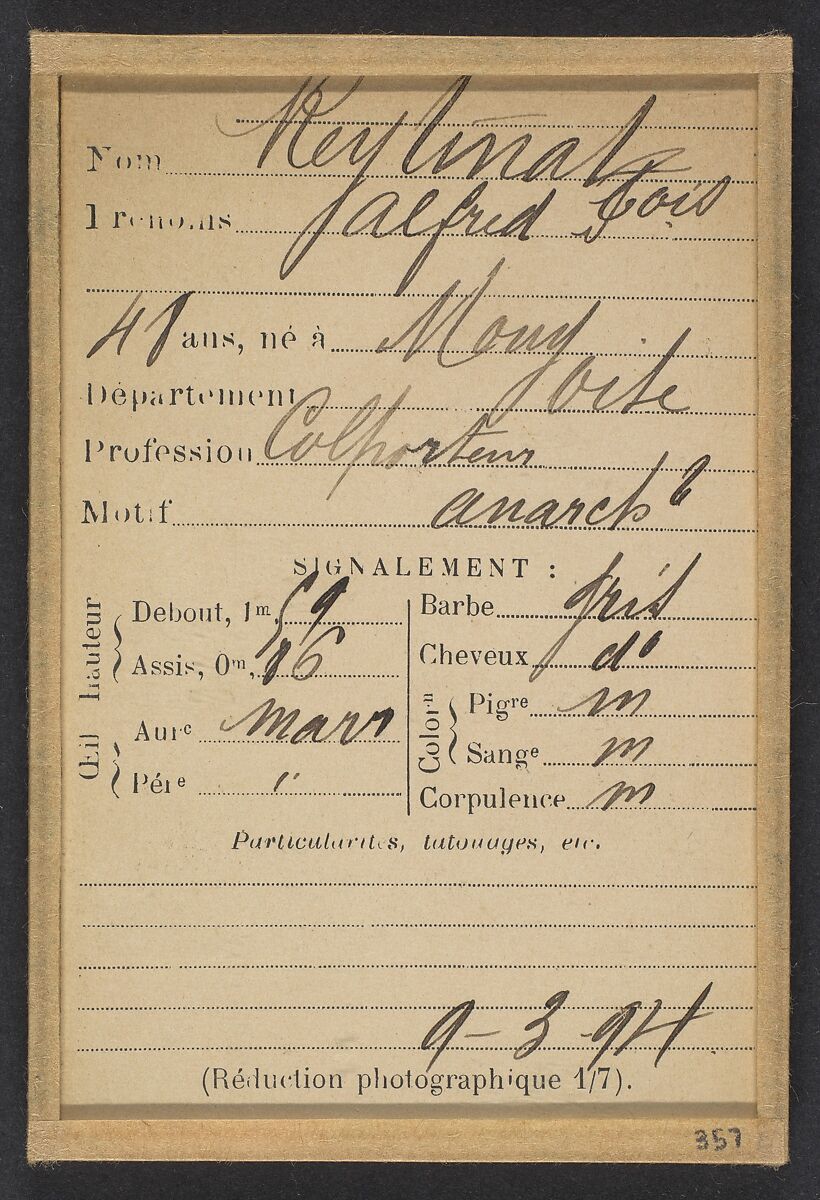 Nom Reytinat
Prénoms Alfred fois
41 ans, né à Mouy
Département Oise
Profession Colporteur
Motif anarch
SIGNALEMENT :
hauteur
Debout, 1m, 59
Assis, 0m, 86
Œil
Aurc marr
Pére "
Barbe gris
Cheveux do
Colorn
Pigre m
Sange m
Corpulence m
Particularités, tatouages, etc.
9-3-94
(Réduction photographique 1/7).
357